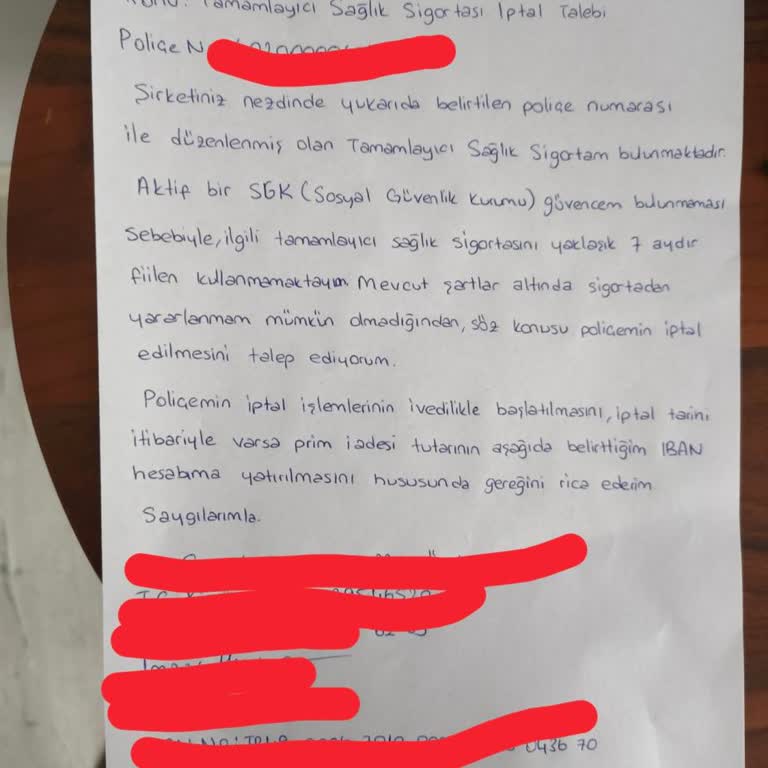 Konu: Tamamlayıcı Sağlık Sigortası İptal Talebi
Poliçe N
Şirketiniz nezdinde yukarıda belirtilen poliçe numarası
ile düzenlenmiş olan Tamamlayıcı Sağlık Sigortam bulunmaktadır.
Aktif bir SGK (Sosyal Güvenlik Kurumu) güvencem bulunmaması
sebebiyle, ilgili tamamlayıcı sağlık sigortasını yaklaşık 7 aydır
fiilen kullanmamaktayım. Mevcut şartlar altında sigortadan
yararlanmam mümkün olmadığından, söz konusu poliçemin iptal
edilmesini talep ediyorum.
Poliçemin iptal işlemlerinin ivedilikle başlatılmasını, iptal tarihi
itibariyle varsa prim iadesi tutarının aşağıda belirttiğim IBAN
hesabıma yatırılmasını hususunda gereğini rica ederim.
Saygılarımla.